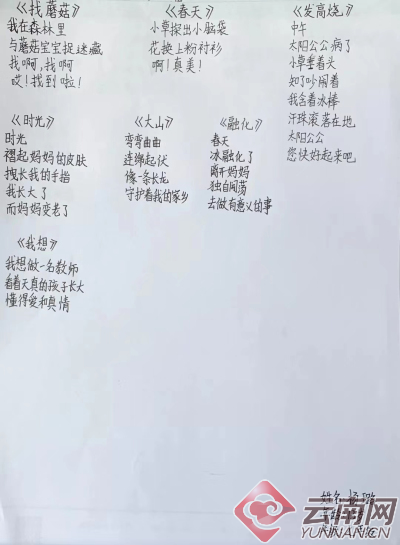 《找蘑菇》
我在森林里
与蘑菇宝宝捉迷藏
找啊,找啊
哎!找到啦!
《春天》
小草探出小脑袋
花换上粉衬衫
啊!真美!
《发高烧》
中午
太阳公公病了
小草垂着头
知了吵闹着
我含着冰棒
汗珠滚落在地
太阳公公
您快好起来吧
《时光》
时光
褶起妈妈的皮肤
拽长我的手指
我长大了
而妈妈变老了
《大山》
弯弯曲曲
连绵起伏
像一条长龙
守护着我的家乡
《融化》
春天
冰融化了
离开妈妈
独自闯荡
去做有意义的事
《我想》
我想做一名教师
看着天真的孩子长大
懂得爱和真情
姓名:杨璐
云南网
YUNNAN.CN